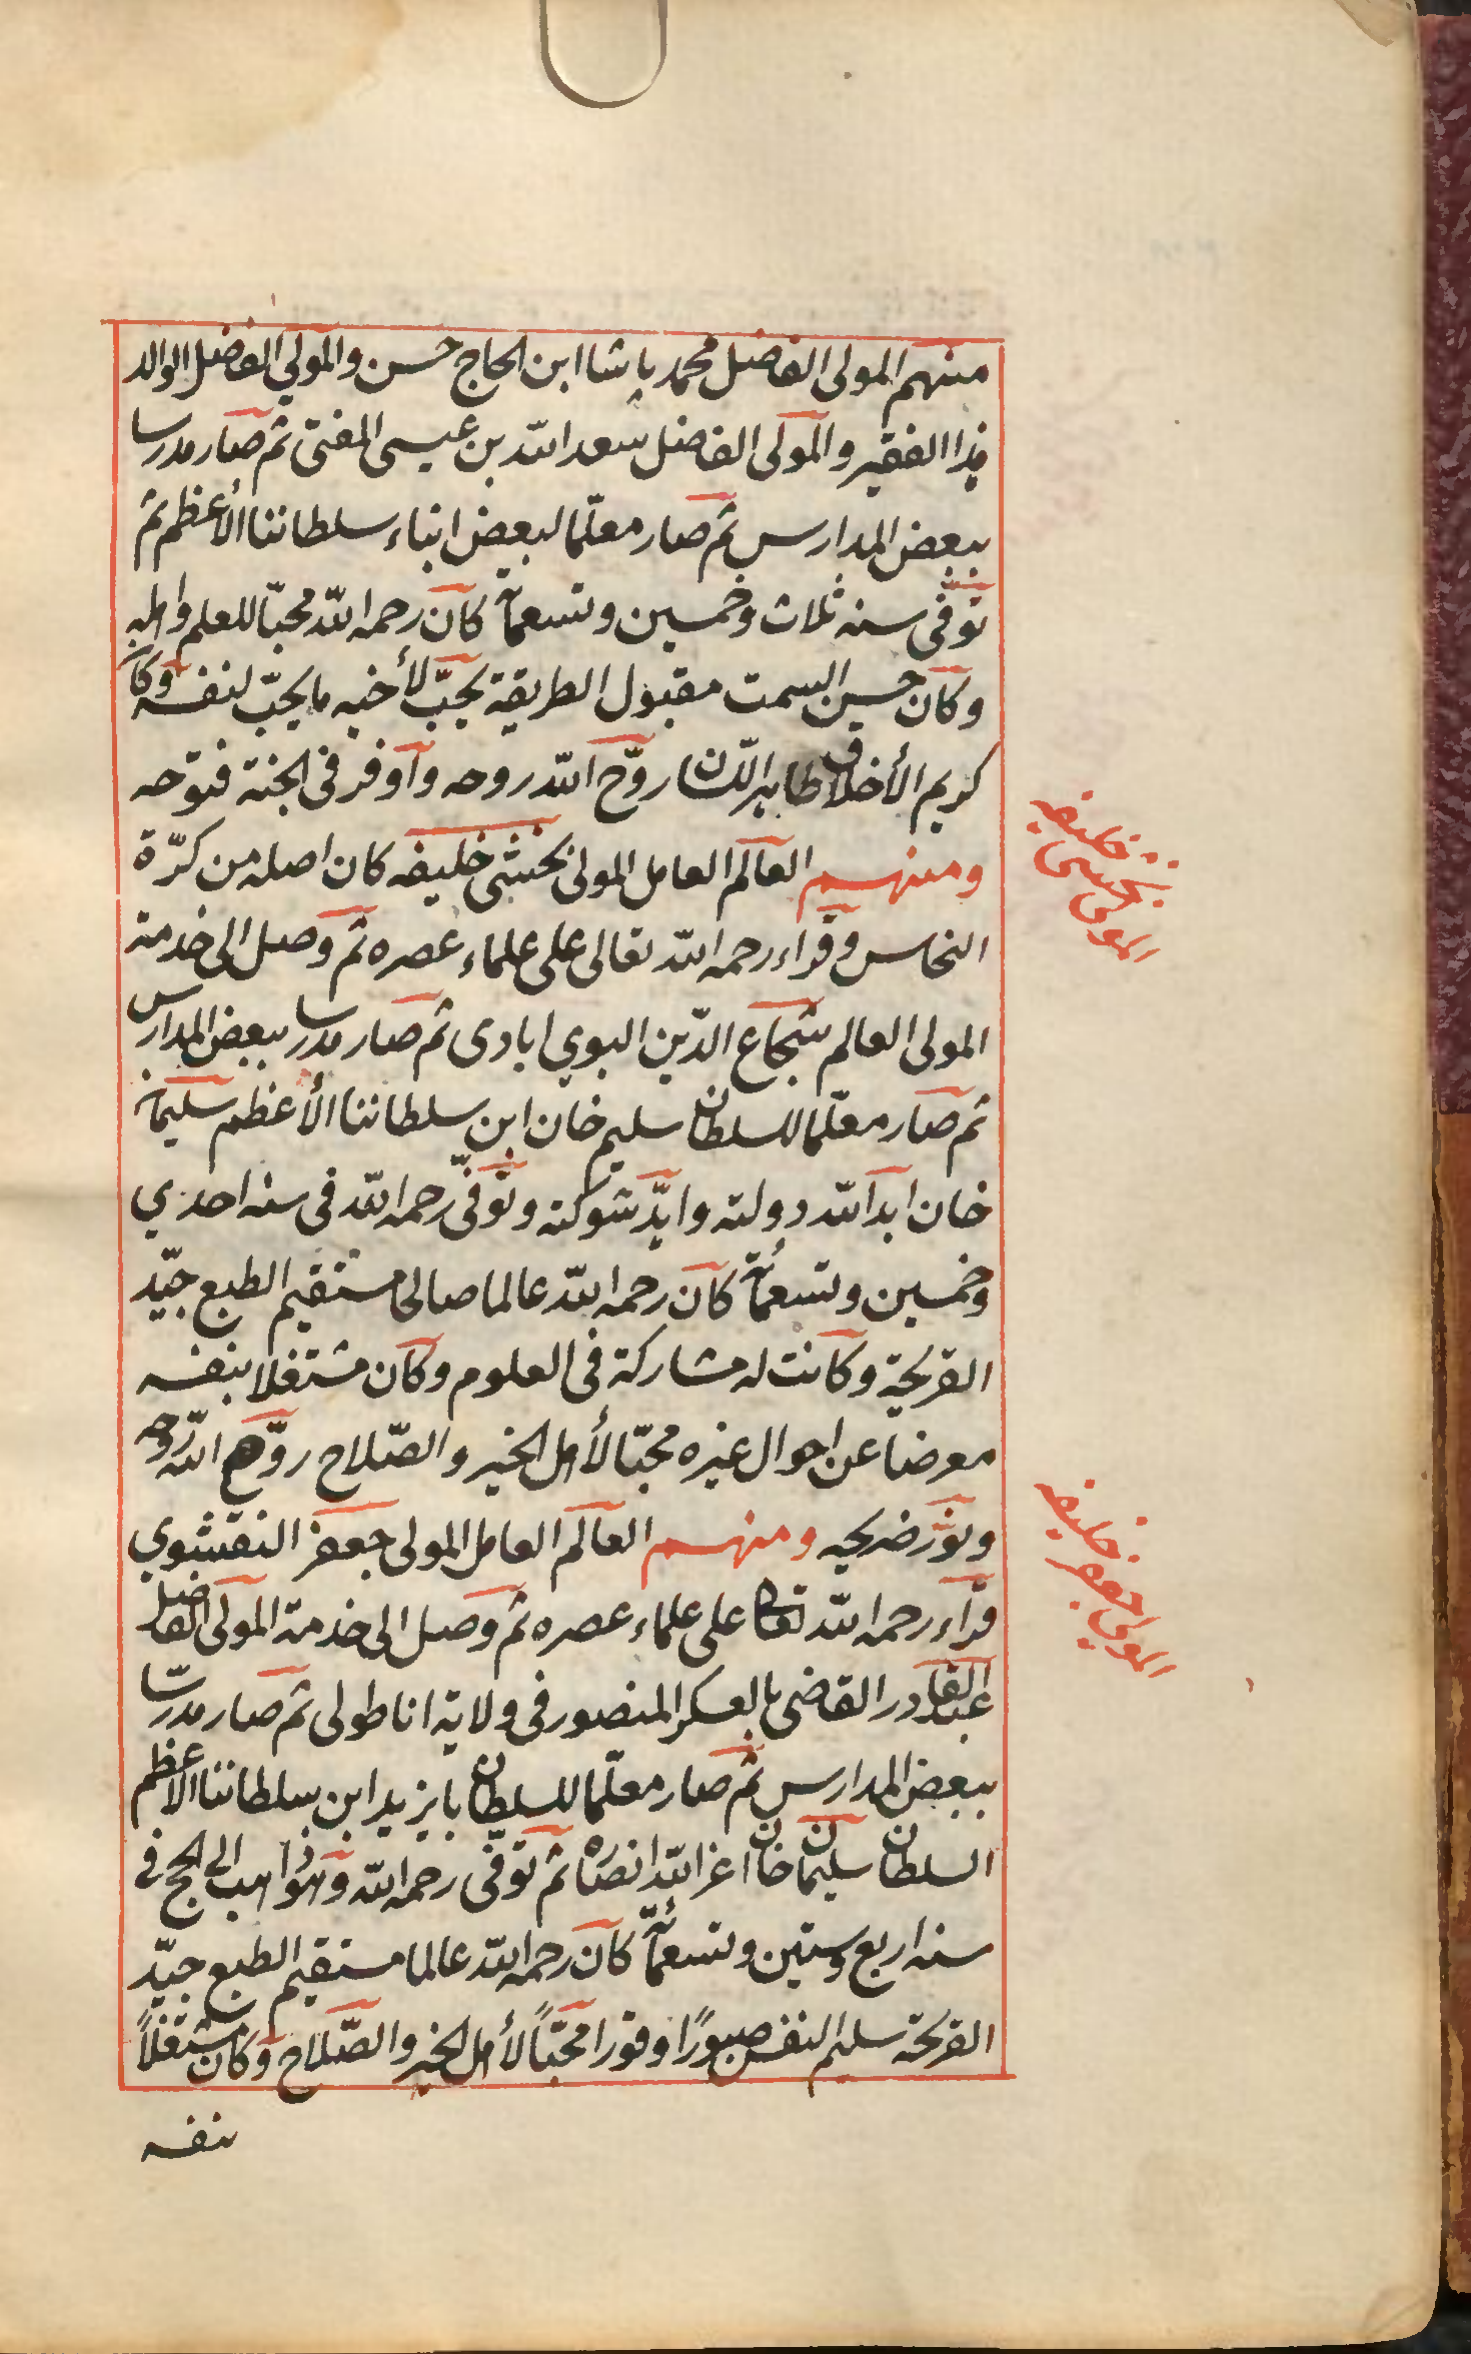 منهم المولى الفاضل محمد باشا ابن الحاج حسن والمولي الفاضل الوالد
هذا الفقير والمولى الفاضل سعد الله بن عيسى المفتى ثم صار مدرسا
ببعض المدارس ثم صار معلّما لبعض ابناء سلطاننا الأعظم ثم
توفّى سنه ثلاث وخمسين وتسعمائة كان رحمه الله محبّا للعلم واهله
وكان حسن السمت مقبول الطريقة يحبّ لأخيه ما يحبّ لنفسه وكان
كريم الأخلاق طاهر اللسان روّح الله روحه وأوفر فى الجنة فتوحه
ومنهم العالم العامل المولى بخشى خليفه كان اصله من كرّة
النحاس وقراء رحمه الله تعالى على علماء عصره ثم وصل الى خدمة
المولى العالم شجاع الدّين البوي ابادى ثم صار مدرسا ببعض المدارس
ثم صار معلّما للسلطان سليم خان ابن سلطاننا الأعظم سليمان
خان ابد الله دولته وايّد شوكته وتوفّى رحمه الله فى سنه احدي
وخمسين وتسعمائة كان رحمه الله عالما صالحا مستقيم الطبع جيّد
القريحة وكانت له مشاركة فى العلوم وكان مشتغلا بنفسه
معرضا عن احوال غيره محبّا لأهل الخير والصّلاح روّح الله روحه
ونوّر ضريحه ومنهم العالم العامل المولى جعفر النقشوي
قراء رحمه الله تعالى على علماء عصره ثم وصل الى خدمة المولى الفاضل
عبد القادر القاضى بالعسكر المنصور فى ولاية اناطولى ثم صار مدرّسا
ببعض المدارس ثم صار معلّما للسلطان بايزيد ابن سلطاننا الاعظم
السلطان سليمان خان اعز الله انصاره ثم توفّى رحمه الله وهو ذاهب الى الحج فى
سنه اربع وستين وتسعمائة كان رحمه الله عالما مستقيم الطبع جيّد
القريحة سليم النفس صبورًا وقورا محبّاً لأهل الخير والصّلاح وكان مشتغلاً
بنفسه
المولى بخشى خليفه
المولى جعفر خليفه